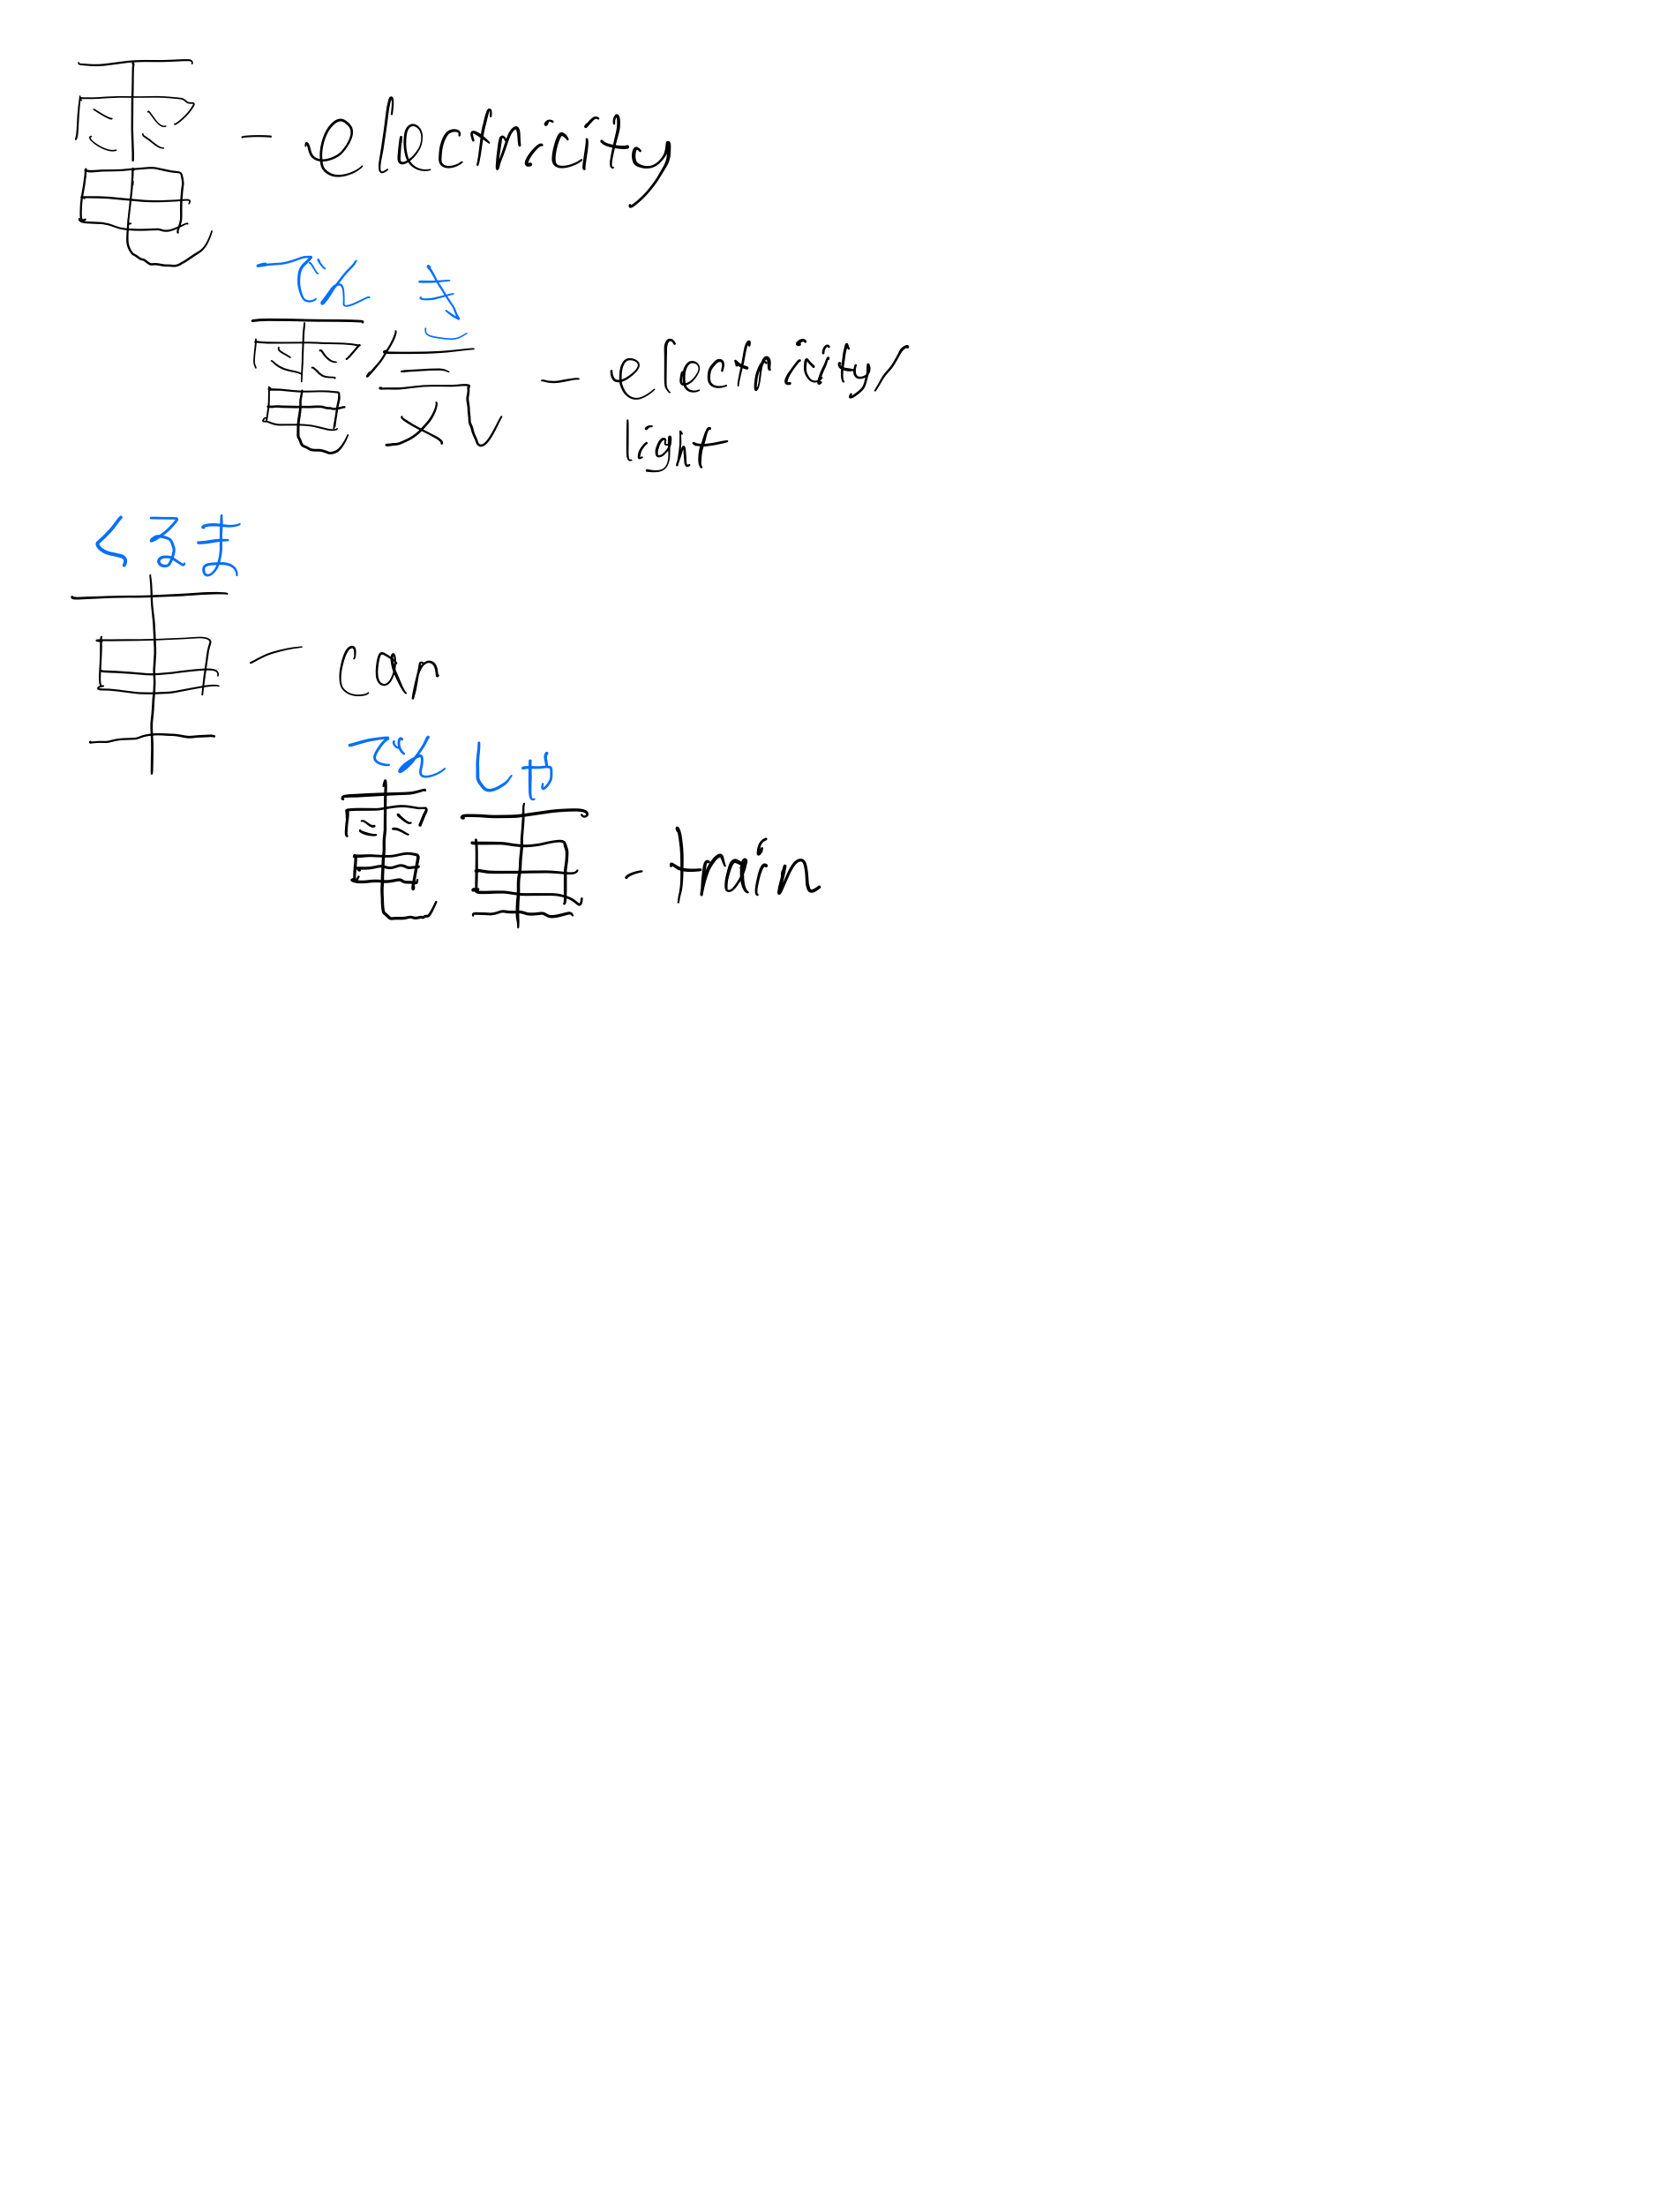 電 - electricity
でんき
電気 - electricity/
light
くるま
車 - car
でんしゃ
電車 - train